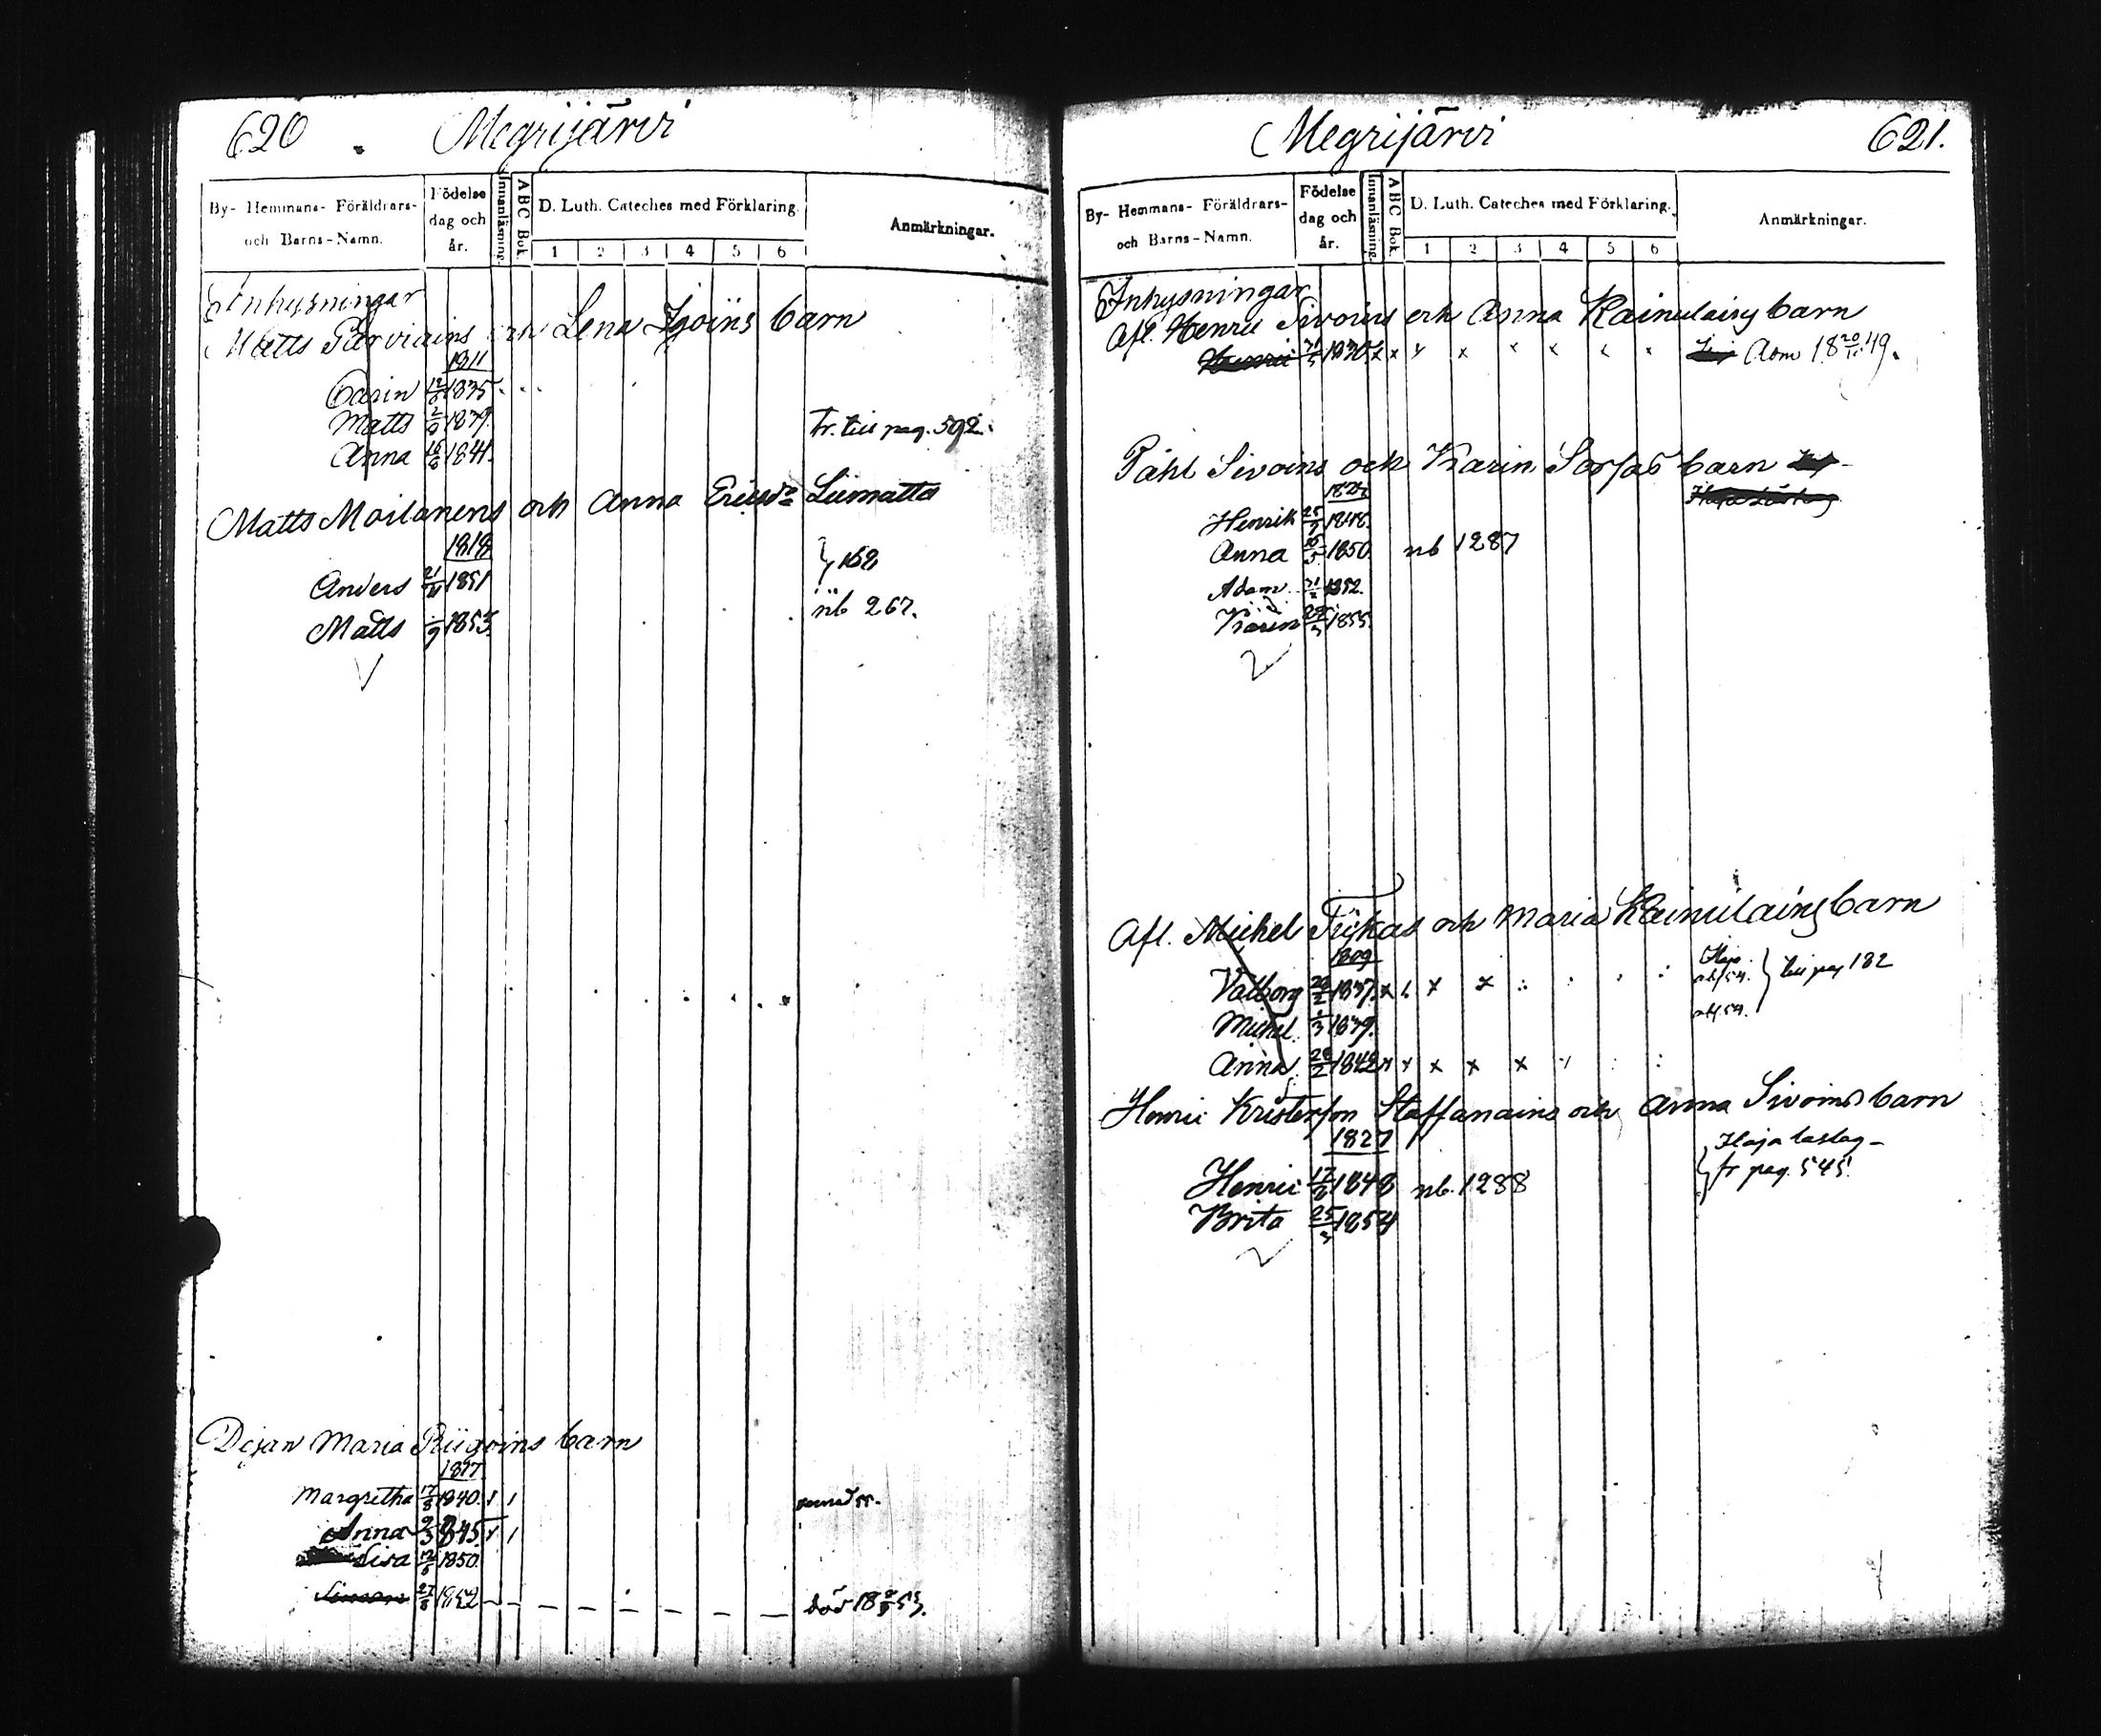 620 Megrijärvi
By- Hemmans- Föräldrars- och Barns-Namn.
Födelse dag och år.
Innanläsning.
ABC Bok.
D. Luth. Cateches med Förklaring.
1 2 3 4 5 6
Anmärkningar.
Inhysningar
Matts Parviains och Lena Igoins barn
1811
Carin 12/6 1835
Matts 1839. Tr. till pag. 592.
Anna 16/6 1841.
Matts Moilanens och Anna Ericsdr Liimatta
1818
Anders 21/11 1851 } 168
Matts 9 1853. nb 267.
Dejan Maria Riigoins barn
1817
Margretha 17/8 1840.
Anna 1845.
Lisa 12/6 1850.
Simon 27/8 1852 död 18 53.
Megrijärvi 621.
By- Hemmans- Föräldrars- och Barns-Namn.
Födelse dag och år.
Innanläsning.
ABC Bok.
D. Luth. Cateches med Förklaring.
1 2 3 4 5 6
Anmärkningar.
Inhysningar
Afl. Henric Sivoins och Anna Rainulains barn
Henric Adm 18 20/11 49.
Påhl Sivoins och Karin Sorsas barn
Henrik 1848.
Anna 1850. nb 1287
Adam 1852.
Karin 1855.
Afl. Michel Tiihkas och Maria Rainulains barn
1809
Valborg 28/2 1837. } till pag 182
Michel 1/3 1839.
Anna 28/2 1842
Henric Kristersson Staffanains och Anna Sivoins barn
1827
Henric 17/8 1848 nb. 1288 } fr pag. 545.
Brita 25/3 1854